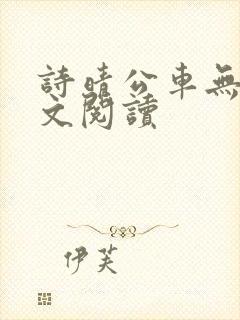 詩晴公車無
文閱讀
伊芙